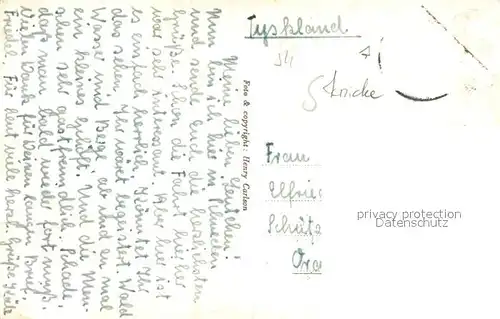 Tyskland.
Stricke
Meine lieben
Nun bin ich hier in
und sende Euch die herzlichsten
Grüße. Schon die Fahrt hierher
war sehr interessant. Aber hier ist
es einfach herrlich, könntet Ihr
das sehen, Ihr wäret begeistert. Wald
Wasser und Berge, ab und an mal
ein kleines Gehöft. Und die Men-
schen sehr gastfreundlich. Schade,
daß man bald wieder fort muß.
Vielen Dank für Deinen langen Brief,
Friedel. Für heut viele herzl. Grüße
Foto & copyright: Henry Carlson
Frau
Elfrie
Schütz
Ora
privacy protection
oldthing.de